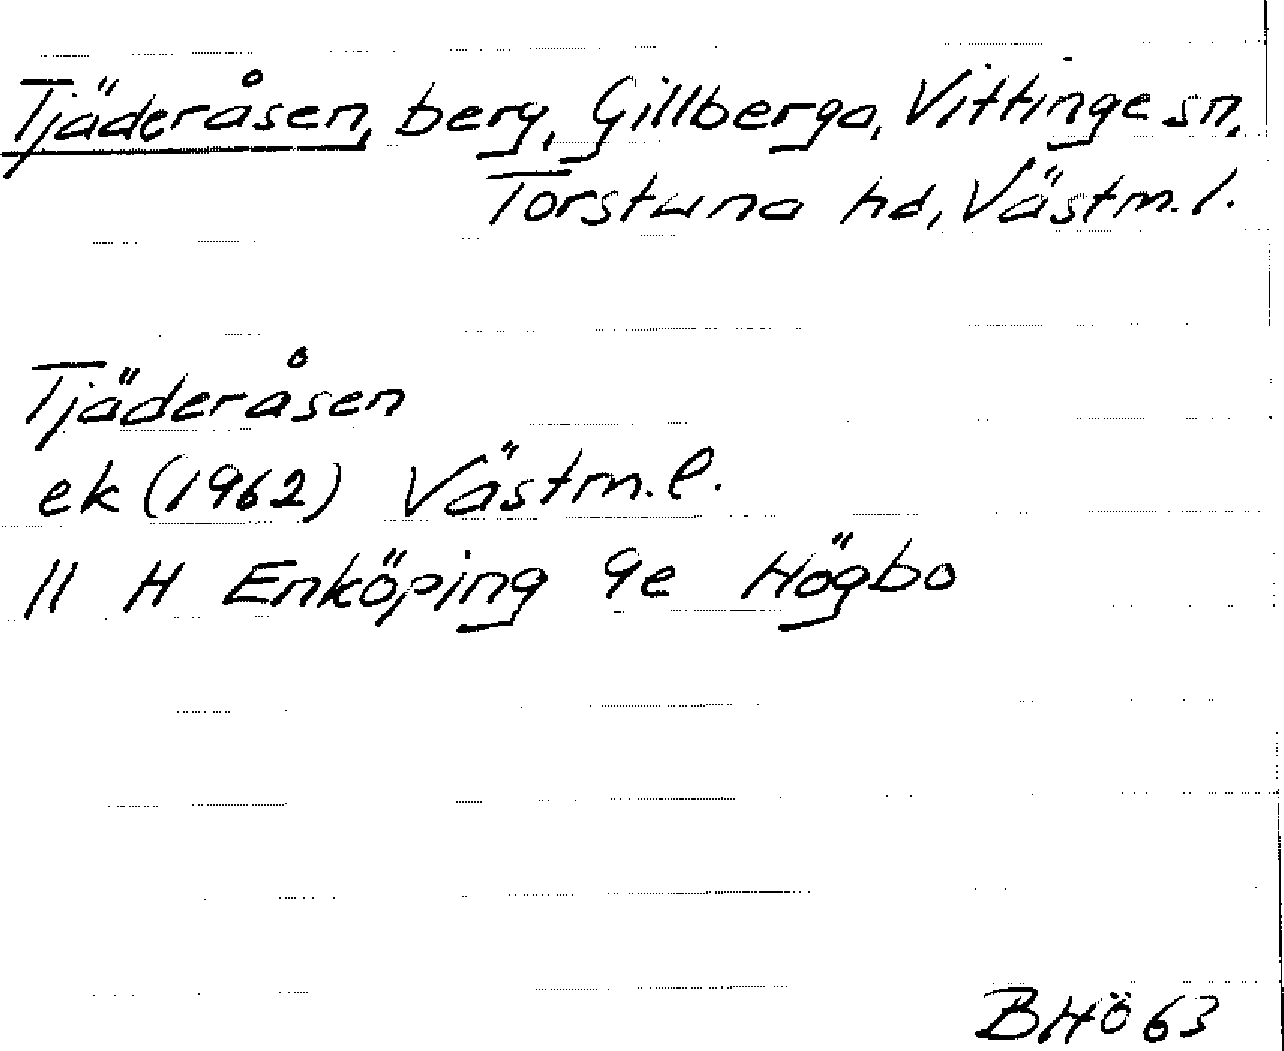 Tjäderåsen, berg, Gillberga, Vittinge sn,
Torstuna hd, Västm. l.
Tjäderåsen
ek (1962) Västm. l.
11 H Enköping 9e Högbo
BHö 63